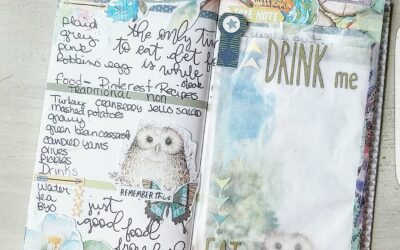 plaid
grey
pink
Robbins egg
the only tim
to eat fat f
is while
steak
Food - Pinterest Recipes
TRADITIONAL NON
Turkey CRANBERRY JELLS SALAD
mashed potatoes
gravy
green bean casserole
CANDIED YAMS
OLIVES
PICKLES
Drinks
water
tea
BYO
REMEMBER this
just
good
food
NOTE
DRINK me
EAT